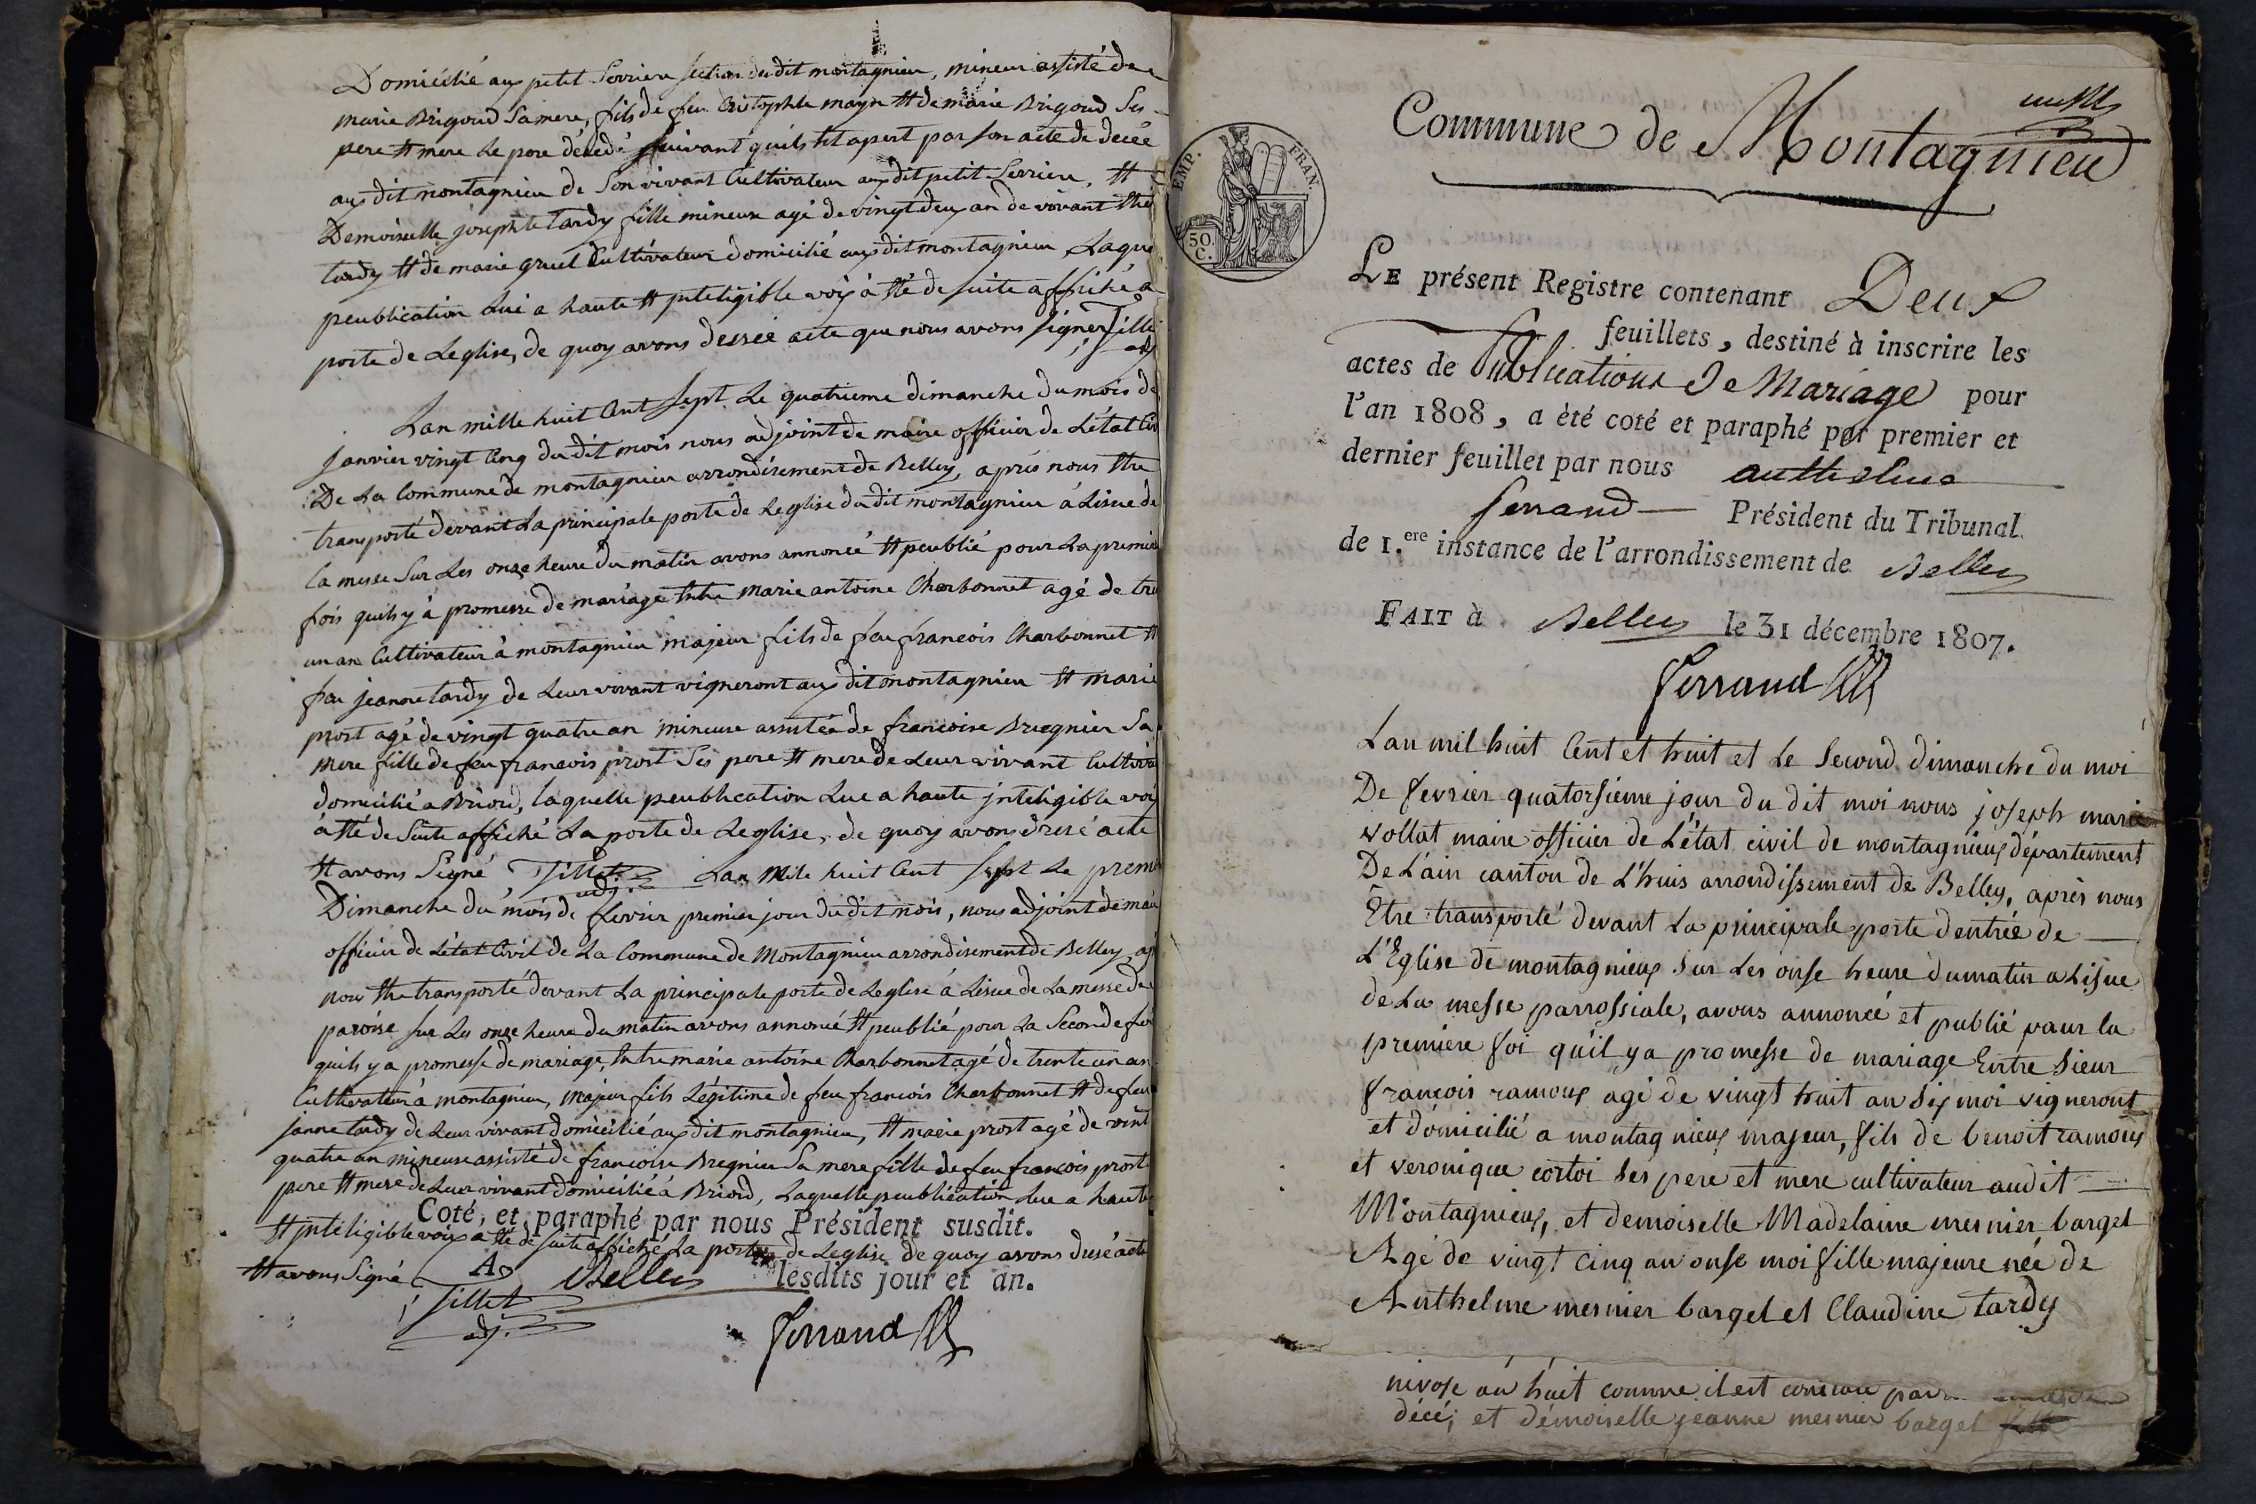 Domicilié aux petit Serriere section dudit montagnieu, mineur assisté de
marie Brigoud Sa mere, fils de feu Cristophle mayn et de marie Brigoud Ses
pere et mere Le pere décédé suivant quils Et apert par son acte de décée
aux dit montagnieu de Son vivant Cultivateur aux dit petit Serriere, Et
Demoiselle josephte tardy fille mineure agé de vingt deux an de vivant
tardy Et de marie gruel Cultivateur domicilié aux dit montagnieu Laque
peublication Lui a haute Et jnteligible voix à Eté de suite affiché a
porte de Leglise, de quoy avons dessée acte que nous avons Signer Tillet
adj
Lan mille huit Cent Sept Le quatrieme dimanche du mois de
Janvier vingt Cinq du dit mois nous adjoint de maire officier de Létat Civ
De La Commune de montagnieu arrondisement de Belley, apres nous Etre
transporté devant La principale porte de Leglise du dit montagnieu à Lisue de
la messe Sur Les onze heure du matin avons annoncé Et peublié pour La premier
fois quils y à promesse de mariage Entre Marie antoine Charbonnet agé de tre
un an Cultivateur à montagnieu majeur fils de feu francois Charbonnet Et
feu jeanne tardy de Leur vivant vigneront aux dit montagnieu Et marie
prost agé de vingt quatre an mineure assistée de francoise Bregnier Sa
mere fille de feu francois prost Ses pere Et mere de Leur vivant Cultiva
domicilié a Briord, laquelle peublication Lue a haute jnteligible voix
à Eté de Suite affiché La porte de Leglise, de quoy avons dresé acte
Et avons Signé Tillet adj. Lan Mile huit Cent Sept Le premie
Dimanche du mois de fevrier premier jour du dit mois, nous adjoint de mair
officier de Létat Civil de La Commune de Montagnieu arrondisement de Belley, ap
nous Etre transporté devant La principale porte de Leglise à Lisue de La messe de
paroise sur Les onze heure du matin avons annoncé Et peublié pour La Seconde foi
quils y a promesse de mariage, Entre marie antoine Charbonnet agé de trente un an
Cultivateur à montagnieu, majeur fils Légitime de feu francois Charbonnet Et de feu
janne tardy de Leur vivant domicilié aux dit montagnieu, Et marie prost agé de vint
quatre an mineure assisté de francoise Bregnier Sa mere fille de feu francois prost
pere Et mere de Leur vivant domicilié à Briord, Laquelle peublication Lue a haute
Coté, et paraphé par nous Président susdit.
Et jnteligible voix a Eté de suite affiché La porte de Leglise de quoy avons dresé acte
Et avons Signé A Belley lesdits jour et an.
Tillet
adj.
Ferrand
Commune de Montagnieu
EMP. FRAN.
50.
C.
LE présent Registre contenant Deux
feuillets, destiné à inscrire les
actes de Publications De Mariage pour
l'an 1808, a été coté et paraphé par premier et
dernier feuillet par nous anthelme
ferrand Président du Tribunal
de 1.ere instance de l'arrondissement de Belley
FAIT à Belley le 31 décembre 1807.
Ferrand
Lan mil huit Cent et huit et Le Second dimanche du moi
De fevrier quatorsieme jour du dit moi nous joseph marie
vollat maire officier de L'état civil de montagnieux département
De L'ain canton de L'huis arrondissement de Belley, après nous
Etre transporté devant La principale porte d'entrée de
L'Eglise de montagnieux sur Les onse heure dumatin a Lisue
de La messe parrossiale, avons annoncé et publié pour la
première foi qu'il y a promesse de mariage Entre Sieur
francois ramoux agé de vingt huit an Six moi vigneront
et domicilié a montagnieux majeur, fils de benoit ramoux
et veronique cortoi Ses pere et mere cultivateur audit
Montagnieux, et demoiselle Madelaine mesnier barget
Agé de vingt Cinq an onse moi fille majeure née de
Anthelme mesnier barget et Claudine tardy
nivose an huit comme il est
décé; et démoiselle jeanne mesnier barget